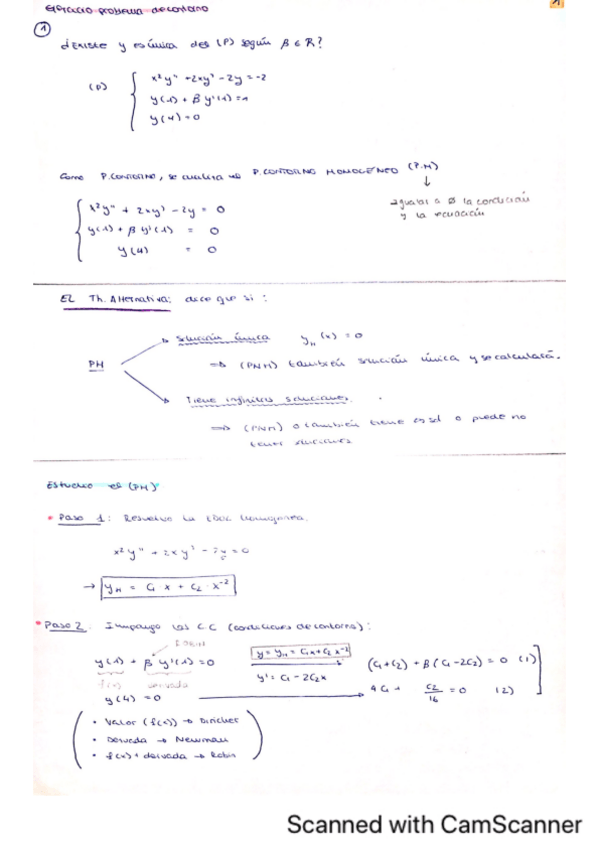 Ejercicio problema de contorno
1
¿Existe y es única des (P) según β ∈ R?
(P) { x²y'' + 2xy' - 2y = -2
y(1) + β y'(1) = 1
y(4) = 0
Como P. CONTORNO, se analiza un P. CONTORNO HOMOGÉNEO (P.H)
↓
igualar a ∅ la condición
y la ecuación
{ x²y'' + 2xy' - 2y = 0
y(1) + β y'(1) = 0
y(4) = 0
EL Th. Alternativa: dice que si:
PH
→ solución única y_H(x) = 0
⇒ (PNH) también solución única y se calculará.
→ Tiene infinitas soluciones.
⇒ (PNH) o también tiene ∞ sol o puede no
tener soluciones
Estudio el (PH)
* Paso 1: Resuelvo la EDO homogénea.
x²y'' + 2xy' - 2y = 0
→ y_H = C₁ x + C₂ · x⁻²
* Paso 2. Impongo las CC (condiciones de contorno):
Robin
y(1) + β y'(1) = 0
f(x) derivada
y(4) = 0
y = y_H = C₁x + C₂ x⁻²
y' = C₁ - 2C₂x
(C₁ + C₂) + β(C₁ - 2C₂) = 0 (1)
4C₁ + C₂/16 = 0 (2)
• Valor (f(x)) → Diricher
• Derivada → Newman
• f(x) + derivada → Robin
Scanned with CamScanner